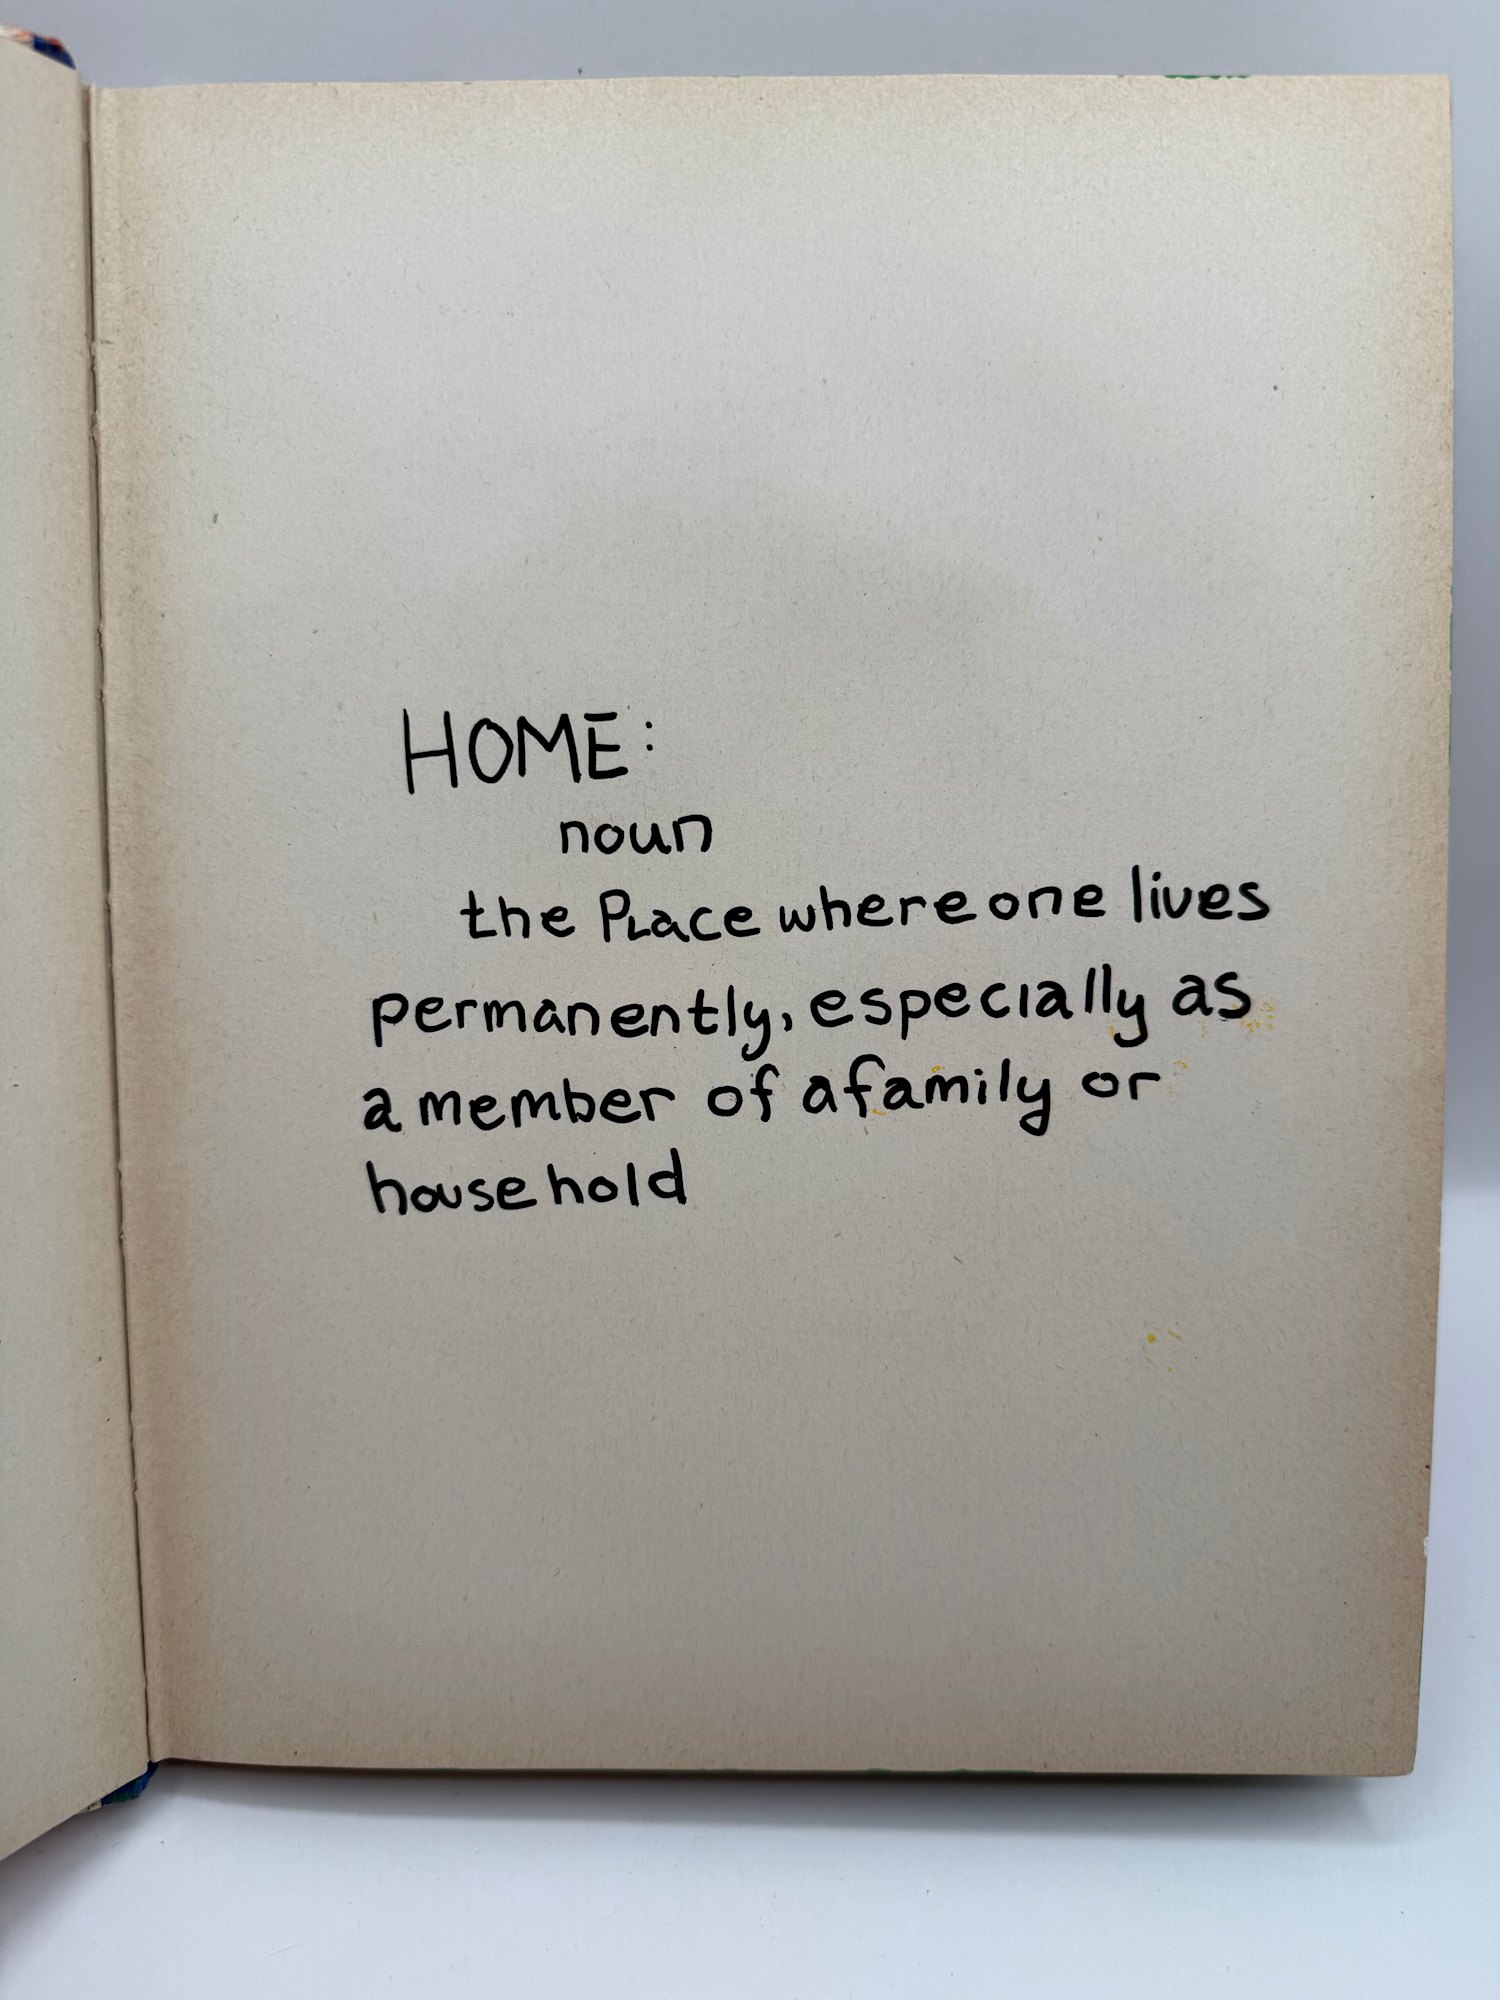 HOME:
noun
the Place where one lives
permanently, especially as
a member of a family or
household